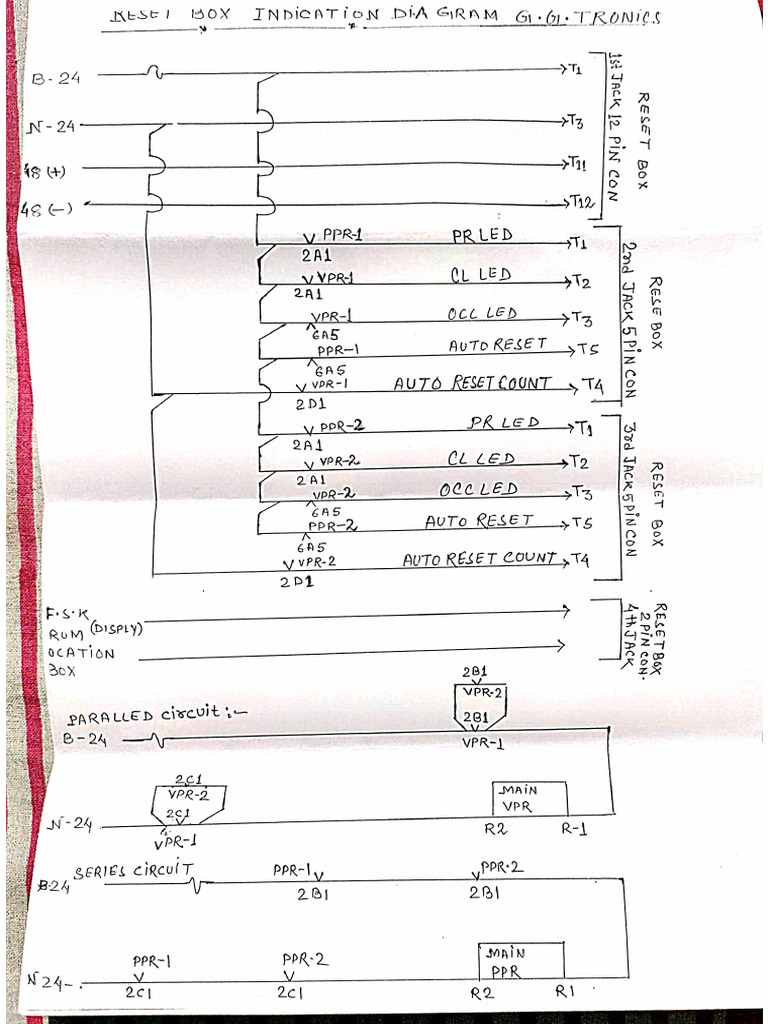 RESET BOX INDICATION DIAGRAM G.G.TRONICS
B-24
T1
N-24
T3
48 (+)
T11
48 (-)
T12
1st JACK 12 PIN CON
RESET BOX
PPR-1 PR LED T1
2A1
VPR-1 CL LED T2
2A1
VPR-1 OCC LED T3
6A5
PPR-1 AUTO RESET T5
6A5
VPR-1 AUTO RESET COUNT T4
2D1
2nd JACK 5 PIN CON
RESE BOX
PPR-2 PR LED T1
2A1
VPR-2 CL LED T2
2A1
VPR-2 OCC LED T3
6A5
PPR-2 AUTO RESET T5
6A5
VPR-2 AUTO RESET COUNT T4
2D1
3rd JACK 5 PIN CON
RESET BOX
F.S.K
RUM (DISPLY)
OCATION
BOX
RESET BOX
2 PIN CON-
4th JACK
2B1
VPR-2
PARALLED circuit:-
2B1
B-24
VPR-1
2C1
VPR-2
2C1
MAIN
VPR
N-24
VPR-1
R2 R-1
SERIES CIRCUIT
PPR-1 PPR-2
B-24
2B1 2B1
PPR-1 PPR-2
MAIN
PPR
N24-
2C1 2C1 R2 R1